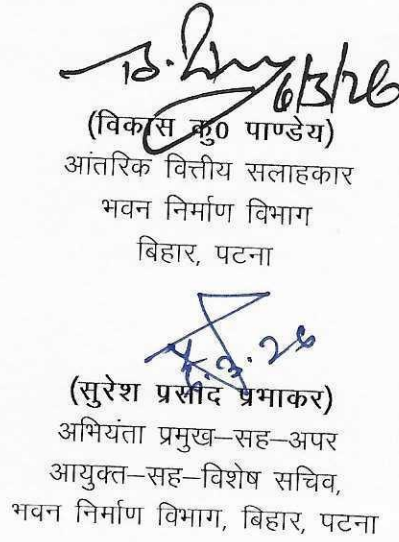 6/3/26
(विकास कु0 पाण्डेय)
आंतरिक वित्तीय सलाहकार
भवन निर्माण विभाग
बिहार, पटना
6.3.26
(सुरेश प्रसाद प्रभाकर)
अभियंता प्रमुख–सह–अपर
आयुक्त–सह–विशेष सचिव,
भवन निर्माण विभाग, बिहार, पटना